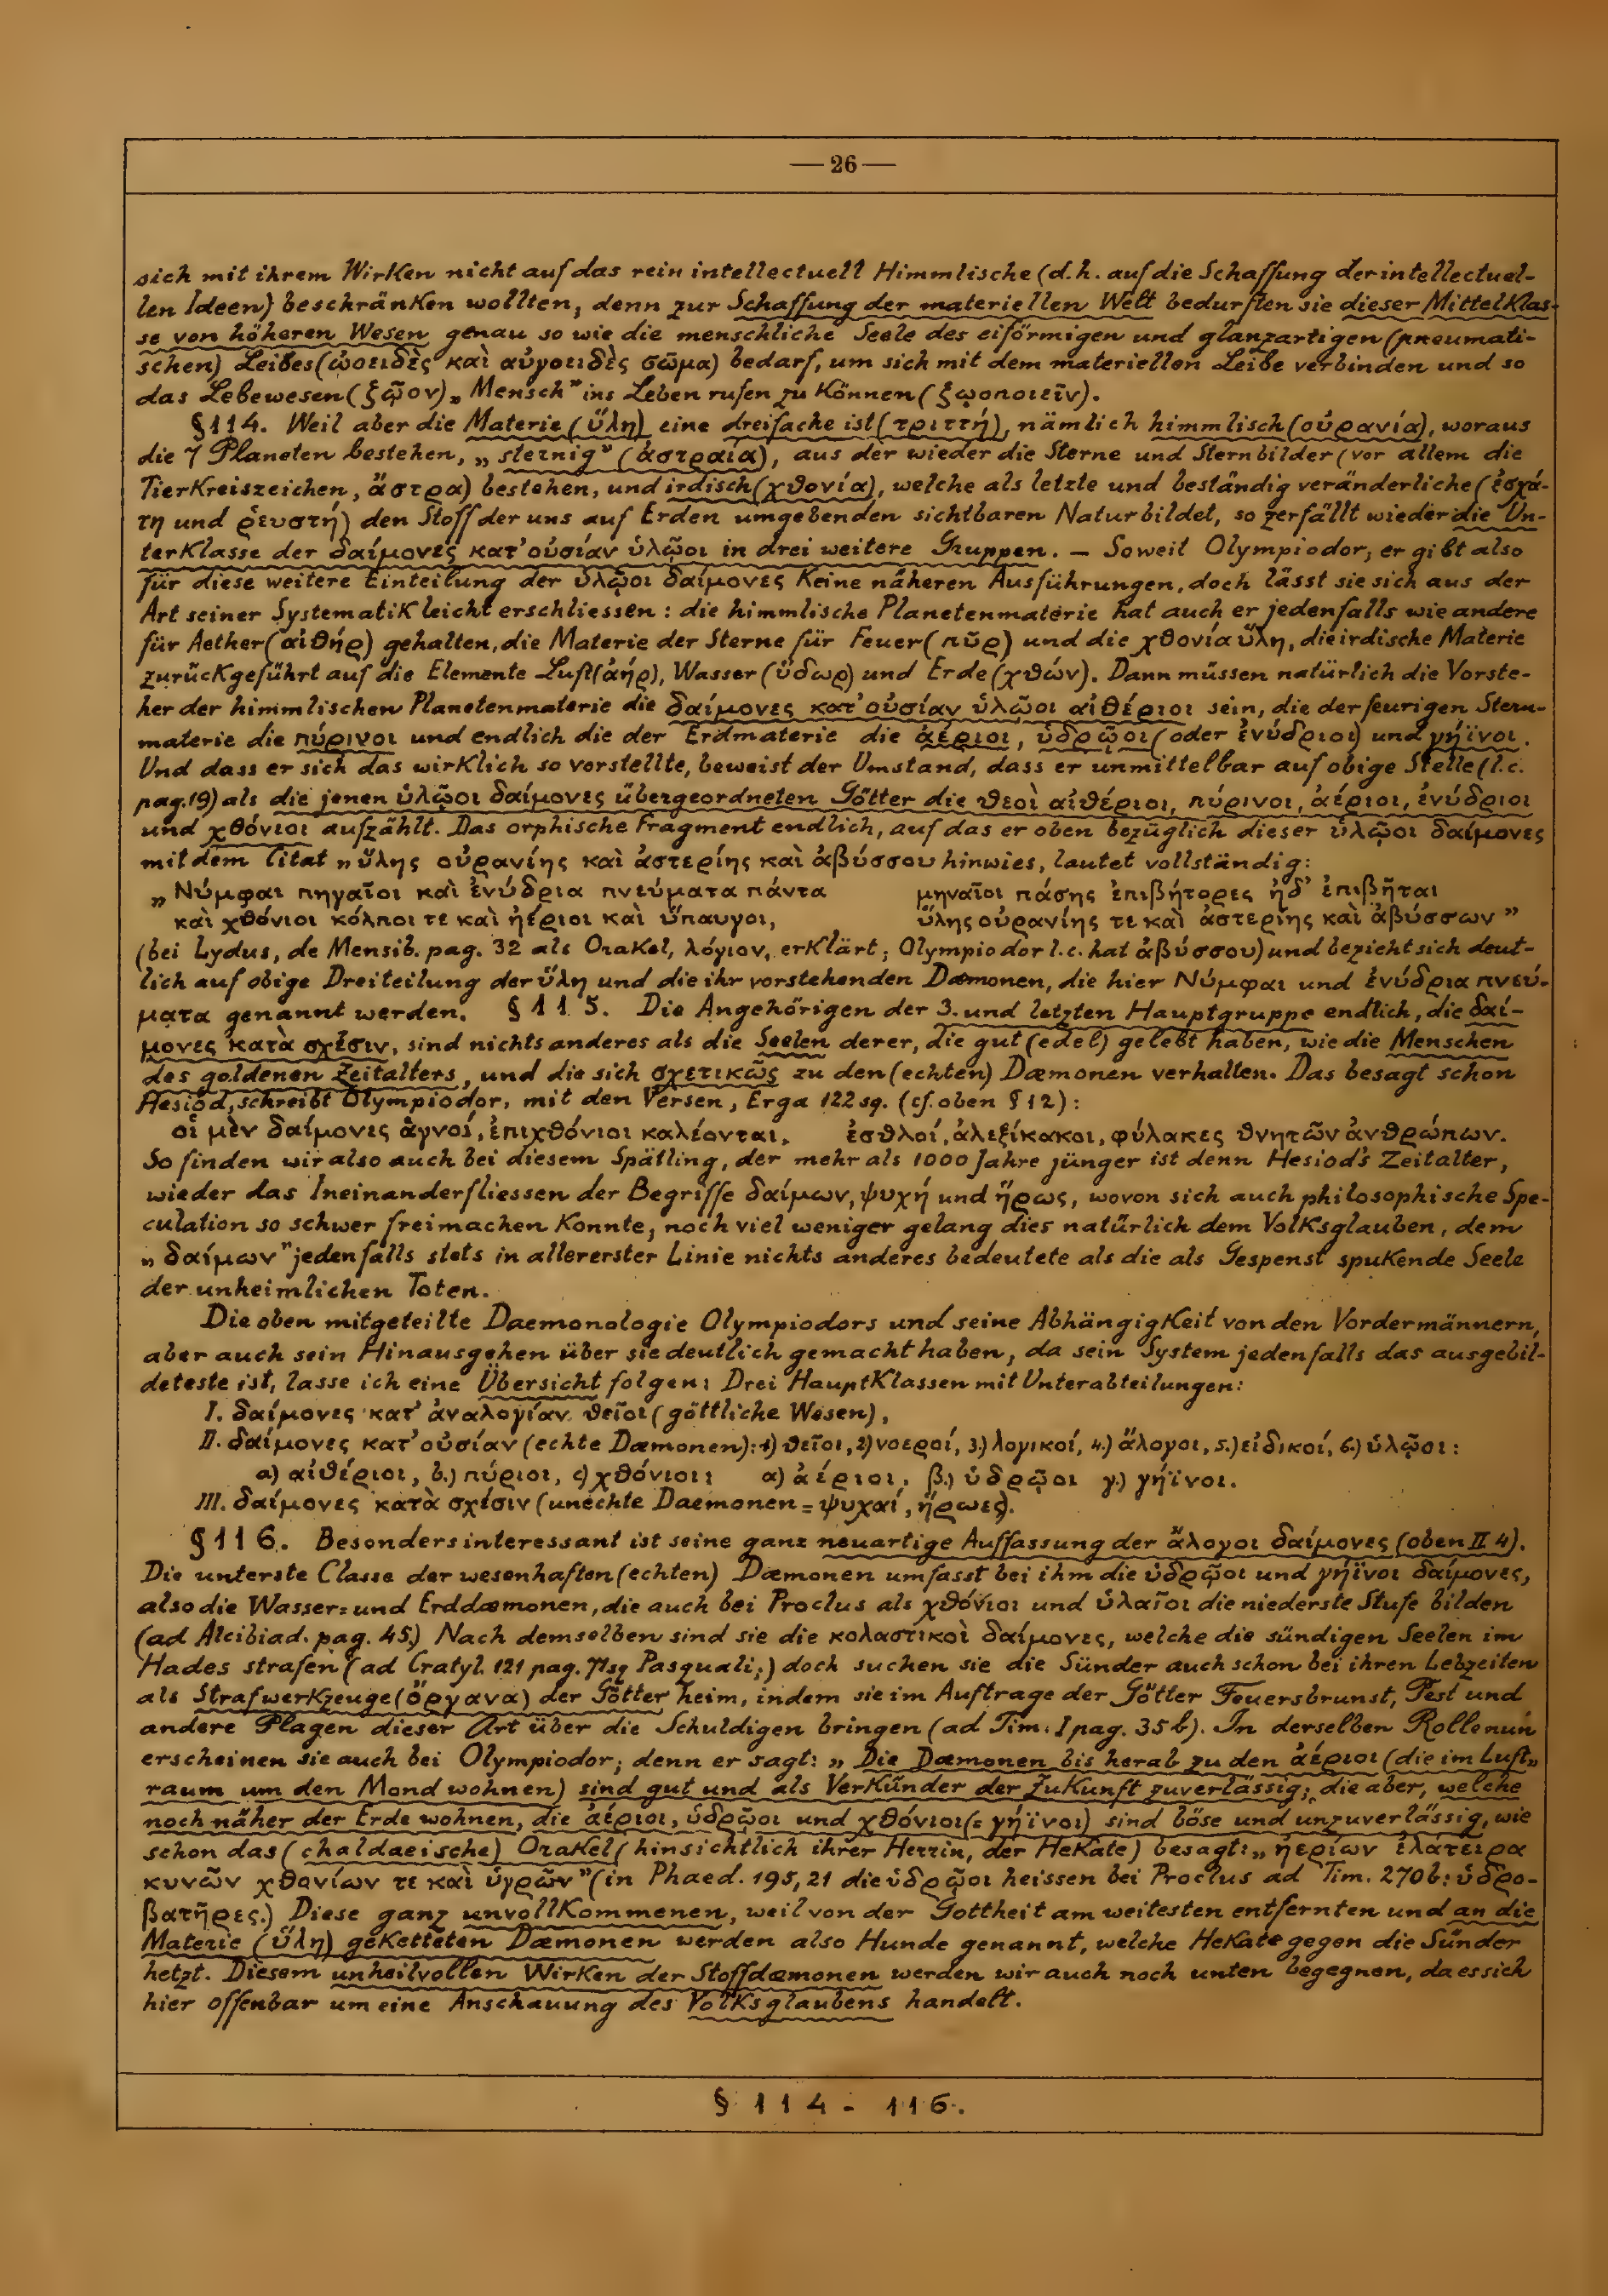 — 26 —
sich mit ihrem Wirken nicht auf das rein intellectuell Himmlische (d.h. auf die Schaffung der intellectuel-
len Ideen) beschränken wollten, denn zur Schaffung der materiellen Welt bedurften sie dieser Mittelklas-
se von höheren Wesen genau so wie die menschliche Seele des eiförmigen und glanzartigen (pneumati-
schen) Leibes (ὠοειδὲς καὶ αὐγοειδὲς σῶμα) bedarf, um sich mit dem materiellen Leibe verbinden und so
das Lebewesen (ξῷον) „Mensch" ins Leben rufen zu können (ξῳοποιεῖν).
§114. Weil aber die Materie (ὕλη) eine dreifache ist (τριττή), nämlich himmlisch (οὐρανία), woraus
die 7 Planeten bestehen, „sternig" (ἀστραία), aus der wieder die Sterne und Sternbilder (vor allem die
Tierkreiszeichen, ἄστρα) bestehen, und irdisch (χθονία), welche als letzte und beständig veränderliche (ἐσχά-
τη und ῥευστή) den Stoff der uns auf Erden umgebenden sichtbaren Natur bildet, so zerfällt wieder die Un-
terklasse der δαίμονες κατ' οὐσίαν ὑλῷοι in drei weitere Gruppen. — Soweit Olympiodor, er gibt also
für diese weitere Einteilung der ὑλῷοι δαίμονες keine näheren Ausführungen, doch lässt sie sich aus der
Art seiner Systematik leicht erschliessen: die himmlische Planetenmaterie hat auch er jedenfalls wie andere
für Aether (αἰθήρ) gehalten, die Materie der Sterne für Feuer (πῦρ) und die χθονία ὕλη, die irdische Materie
zurückgeführt auf die Elemente Luft (ἀήρ), Wasser (ὕδωρ) und Erde (χθών). Dann müssen natürlich die Vorste-
her der himmlischen Planetenmaterie die δαίμονες κατ' οὐσίαν ὑλῷοι αἰθέριοι sein, die der feurigen Stern-
materie die πύρινοι und endlich die der Erdmaterie die ἀέριοι, ὑδρῷοι (oder ἐνύδριοι) und γήϊνοι.
Und dass er sich das wirklich so vorstellte, beweist der Umstand, dass er unmittelbar auf obige Stelle (l.c.
pag. 19) als die jenen ὑλῷοι δαίμονες übergeordneten Götter die θεοὶ αἰθέριοι, πύρινοι, ἀέριοι, ἐνύδριοι
und χθόνιοι aufzählt. Das orphische Fragment endlich, auf das er oben bezüglich dieser ὑλῷοι δαίμονες
mit dem Citat „ὕλης οὐρανίης καὶ ἀστερίης καὶ ἀβύσσου hinwies, lautet vollständig:
„Νύμφαι πηγαῖοι καὶ ἐνύδρια πνεύματα πάντα μηναῖοι πάσης ἐπιβήτορες ἠδ' ἐπιβῆται
καὶ χθόνιοι κόλποι τε καὶ ἠέριοι καὶ ὕπαυγοι, ὕλης οὐρανίης τε καὶ ἀστερίης καὶ ἀβύσσων"
(bei Lydus, de Mensib. pag. 32 als Orakel, λόγιον, erklärt; Olympiodor l.c. hat ἀβύσσου) und bezieht sich deut-
lich auf obige Dreiteilung der ὕλη und die ihr vorstehenden Dæmonen, die hier Νύμφαι und ἐνύδρια πνεύ-
ματα genannt werden. §115. Die Angehörigen der 3. und letzten Hauptgruppe endlich, die δαί-
μονες κατὰ σχέσιν, sind nichts anderes als die Seelen derer, die gut (edel) gelebt haben, wie die Menschen
des goldenen Zeitalters, und die sich σχετικῶς zu den (echten) Dæmonen verhalten. Das besagt schon
Hesiod, schreibt Olympiodor, mit den Versen, Erga 122 sq. (cf. oben §12):
οἱ μὲν δαίμονες ἁγνοί, ἐπιχθόνιοι καλέονται, ἐσθλοί, ἀλεξίκακοι, φύλακες θνητῶν ἀνθρώπων.
So finden wir also auch bei diesem Spätling, der mehr als 1000 Jahre jünger ist denn Hesiod's Zeitalter,
wieder das Ineinanderfliessen der Begriffe δαίμων, ψυχή und ἥρως, wovon sich auch philosophische Spe-
culation so schwer freimachen konnte, noch viel weniger gelang dies natürlich dem Volksglauben, dem
„δαίμων" jedenfalls stets in allererster Linie nichts anderes bedeutete als die als Gespenst spukende Seele
der unheimlichen Toten.
Die oben mitgeteilte Daemonologie Olympiodors und seine Abhängigkeit von den Vordermännern,
aber auch sein Hinausgehen über sie deutlich gemacht haben, da sein System jedenfalls das ausgebil-
deteste ist, lasse ich eine Übersicht folgen: Drei Hauptklassen mit Unterabteilungen:
I. δαίμονες κατ' ἀναλογίαν θεῖοι (göttliche Wesen),
II. δαίμονες κατ' οὐσίαν (echte Dæmonen): 1) θεῖοι, 2) νοεροί, 3.) λογικοί, 4.) ἄλογοι, 5.) εἰδικοί, 6.) ὑλῷοι:
a) αἰθέριοι, b.) πύριοι, c) χθόνιοι: α) ἀέριοι, β.) ὑδρῷοι γ.) γήϊνοι.
III. δαίμονες κατὰ σχέσιν (unechte Daemonen = ψυχαί, ἥρωες).
§116. Besonders interessant ist seine ganz neuartige Auffassung der ἄλογοι δαίμονες (oben II 4).
Die unterste Classe der wesenhaften (echten) Dæmonen umfasst bei ihm die ὑδρῷοι und γήϊνοι δαίμονες,
also die Wasser= und Erddæmonen, die auch bei Proclus als χθόνιοι und ὑλαῖοι die niederste Stufe bilden
(ad Alcibiad. pag. 45.) Nach demselben sind sie die κολαστικοὶ δαίμονες, welche die sündigen Seelen im
Hades strafen (ad Cratyl. 121 pag. 71 sq Pasquali;) doch suchen sie die Sünder auch schon bei ihren Lebzeiten
als Strafwerkzeuge (ὄργανα) der Götter heim, indem sie im Auftrage der Götter Feuersbrunst, Pest und
andere Plagen dieser Art über die Schuldigen bringen (ad Tim. I pag. 35 b). In derselben Rolle nun
erscheinen sie auch bei Olympiodor; denn er sagt: „Die Dæmonen bis herab zu den ἀέριοι (die im Luft=
raum um den Mond wohnen) sind gut und als Verkünder der Zukunft zuverlässig; die aber, welche
noch näher der Erde wohnen, die ἀέριοι, ὑδρῷοι und χθόνιοι (= γήϊνοι) sind böse und unzuverlässig, wie
schon das (chaldaeische) Orakel (hinsichtlich ihrer Herrin, der Hekate) besagt: „ἠερίων ἐλάτειρα
κυνῶν χθονίων τε καὶ ὑγρῶν" (in Phaed. 195, 21 die ὑδρῷοι heissen bei Proclus ad Tim. 270 b: ὑδρο-
βατῆρες.) Diese ganz unvollkommenen, weil von der Gottheit am weitesten entfernten und an die
Materie (ὕλη) geketteten Dæmonen werden also Hunde genannt, welche Hekate gegen die Sünder
hetzt. Diesem unheilvollen Wirken der Stoffdæmonen werden wir auch noch unten begegnen, da es sich
hier offenbar um eine Anschauung des Volksglaubens handelt.
§ 114 - 116.